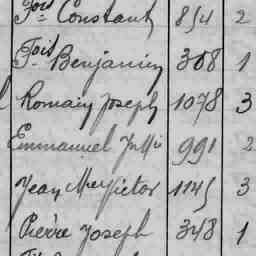 Fois Constant 854 2
Fois Benjamin 308 1
Romain Joseph 1078 3
Emmanuel 991 2
Jean Victor 1145 3
Pierre Joseph 348 1